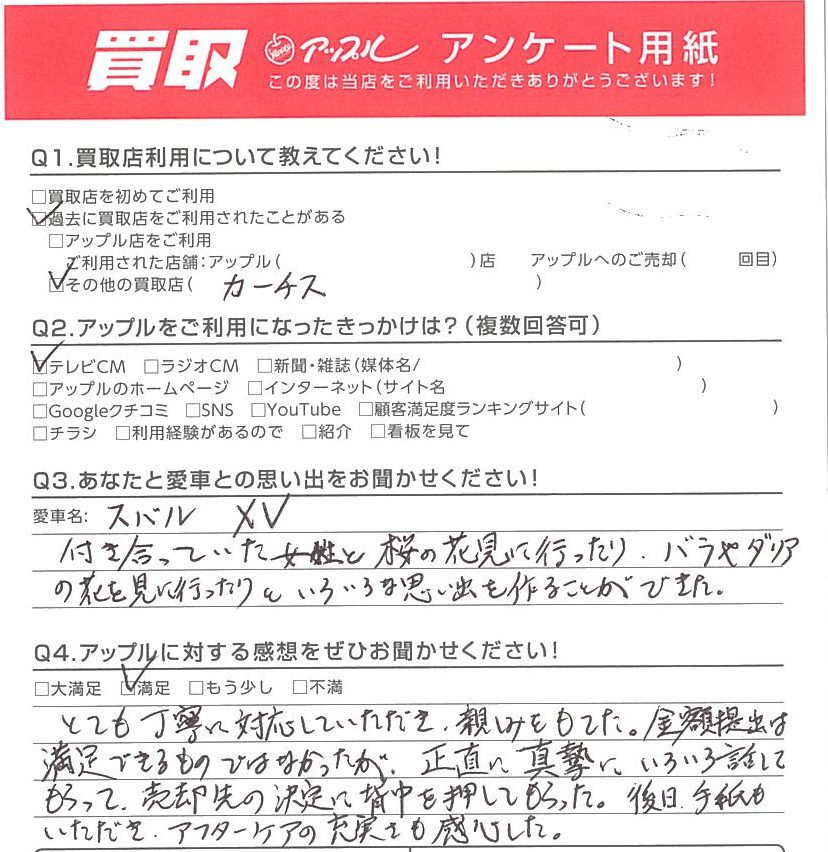 買取 アップル アンケート用紙
この度は当店をご利用いただきありがとうございます!
Q1.買取店利用について教えてください!
□買取店を初めてご利用
☑過去に買取店をご利用されたことがある
□アップル店をご利用
ご利用された店舗:アップル( )店 アップルへのご売却( 回目)
☑その他の買取店( カーチス )
Q2.アップルをご利用になったきっかけは?(複数回答可)
☑テレビCM □ラジオCM □新聞・雑誌(媒体名/ )
□アップルのホームページ □インターネット(サイト名 )
□Googleクチコミ □SNS □YouTube □顧客満足度ランキングサイト( )
□チラシ □利用経験があるので □紹介 □看板を見て
Q3.あなたと愛車との思い出をお聞かせください!
愛車名: スバル XV
付き合っていた女性と桜の花見に行ったり、バラやダリア
の花を見に行ったりといろいろな思い出を作ることができた。
Q4.アップルに対する感想をぜひお聞かせください!
□大満足 ☑満足 □もう少し □不満
とても丁寧に対応していただき、親しみをもてた。金額提出は
満足できるものではなかったが、正直に真摯にいろいろ話して
もらって、売却先の決定に背中を押してもらった。後日、手紙も
いただき、アフターケアの充実さも感心した。